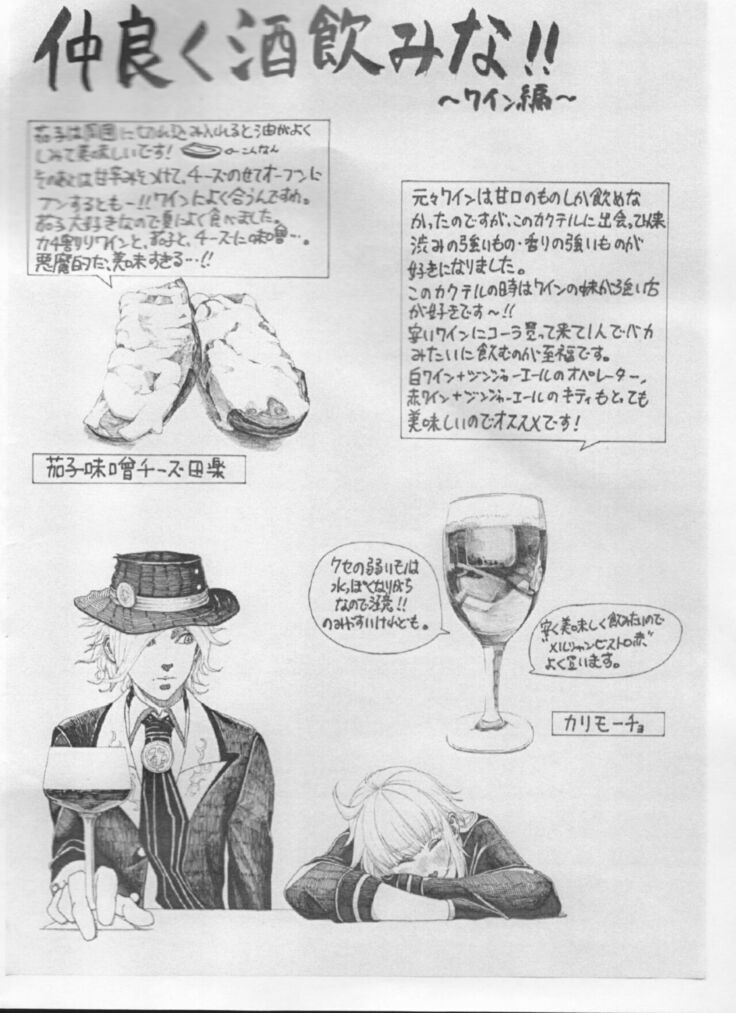 仲良く酒飲みな!!
〜ワイン編〜
茄子は周囲に切れ込み入れると油がよく
しみて美味しいです! ←こんなん
そのあとは甘辛みそつけて、チーズのせてオーブンに
ブンするとも〜!!ワインによく合うんですゎ。
茄子大好きなので夏によく食べました。
カチ割りワインと、茄子と、チーズに味噌…。
悪魔的だ、美味すぎる…!!
茄子味噌チーズ田楽
元々ワインは甘口のものしか飲めな
かったのですが、このカクテルに出会って以来
渋みの強いもの・香りの強いものが
好きになりました。
このカクテルの時はワインの味が強い方
が好きです〜!!
安いワインにコーラ買って来て1人でバカ
みたいに飲むのが至福です。
白ワイン+ジンジャーエールのオペレーター、
赤ワイン+ジンジャーエールのキティもとっても
美味しいのでオススメです!
クセの弱いモノは
水っぽくなりがち
なので注意!!
のみやすいけれども。
安く美味しく飲みたいので
"メルシャンビストロ赤"
よく買います。
カリモーチョ